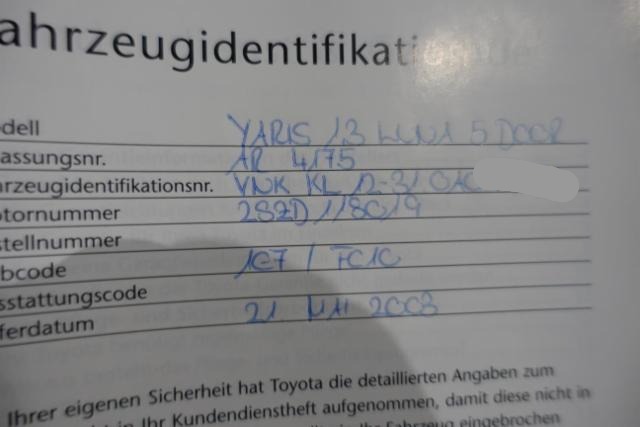 ahrzeugidentifikati
dell YARIS 1,3 LUNA 5 DOOR
assungsnr. AR 4175
rzeugidentifikationsnr. VNK KL
tornummer 2SZD 118019
stellnummer
bcode 1C7 / FC10
sstattungscode
ferdatum 21 MAI 2003
Ihrer eigenen Sicherheit hat Toyota die detaillierten Angaben zum
in Ihr Kundendienstheft aufgenommen, damit diese nicht in
Fahrzeug eingebrochen